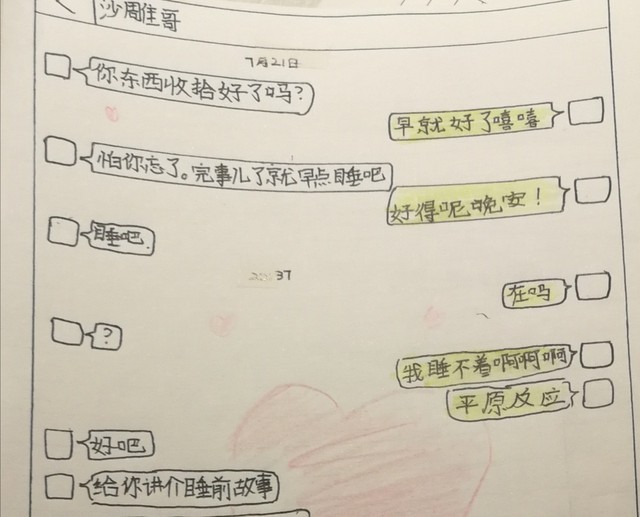 沙周隹哥
7月21日
你东西收拾好了吗?
早就好了嘻嘻
怕你忘了。完事儿了就早点睡吧
好得呢晚安!
睡吧.
37
在吗
?
我睡不着啊啊啊
平原反应
好吧
给你讲个睡前故事